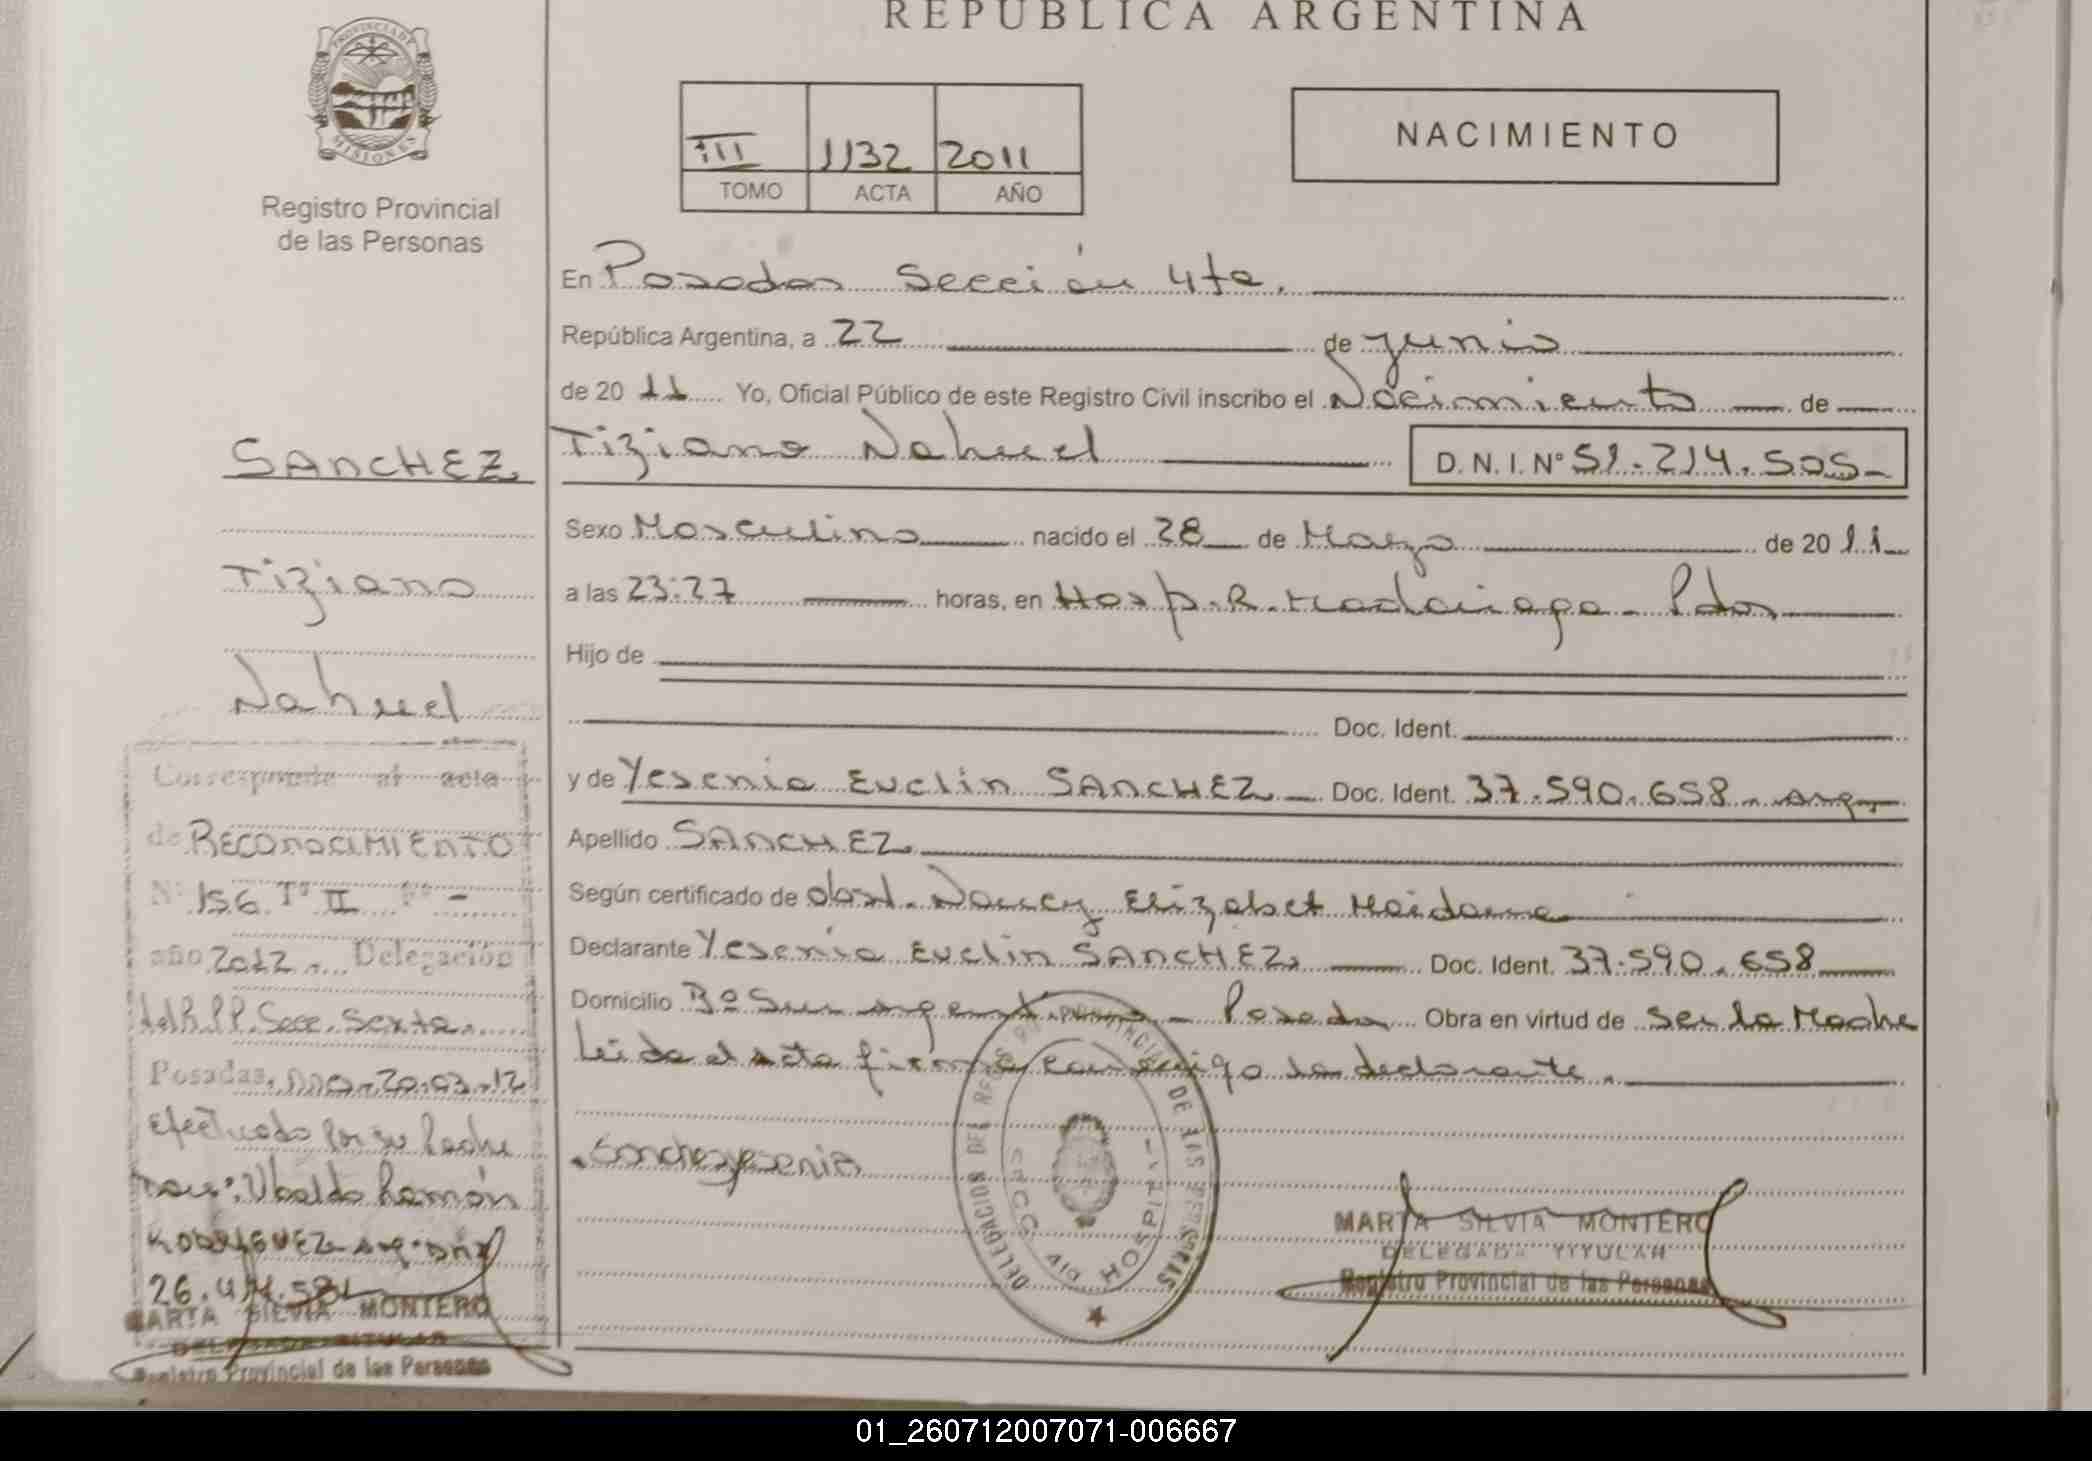 REPÚBLICA ARGENTINA
PROVINCIA DE
MISIONES
Registro Provincial
de las Personas
III 1132 2011
TOMO ACTA AÑO
NACIMIENTO
En Posadas Sección 4ta.
República Argentina, a 22 de junio
de 20 11 Yo, Oficial Público de este Registro Civil inscribo el Nacimiento de
Tiziano Nahuel D.N.I.Nº 51.214.505
Sexo Masculino nacido el 28 de Marzo de 20 11
a las 23:27 horas, en Hosp. R. Madariaga - Pdas
Hijo de
Doc. Ident.
y de Yesenia Evelin SANCHEZ Doc. Ident. 37.590.658 - arg
Apellido SANCHEZ
Según certificado de obst. Nancy Elizabet Maidana
Declarante Yesenia Evelin SANCHEZ Doc. Ident. 37.590.658
Domicilio Bº Sur Argentino - Posadas Obra en virtud de Ser la Madre
Leida el acta firma conmigo la declarante.
Sanchez yesenia
MARTA SILVIA MONTERO
DELEGADA TITULAR
Registro Provincial de las Personas
DE LAS PERSONAS
HOSPITAL
SANCHEZ
Tiziano
Nahuel
Corresponde al acta
de RECONOCIMIENTO
Nº 156 Tº II Fº -
año 2012. Delegación
del R.P.P. Secc. Sexta.
Posadas, Mnes. 20.03.12
Efectuado por su Padre
Ubaldo Ramón
RODRIGUEZ arg. DNI
MARTA SILVIA MONTERO
DELEGADA TITULAR
Registro Provincial de las Personas
01_260712007071-006667